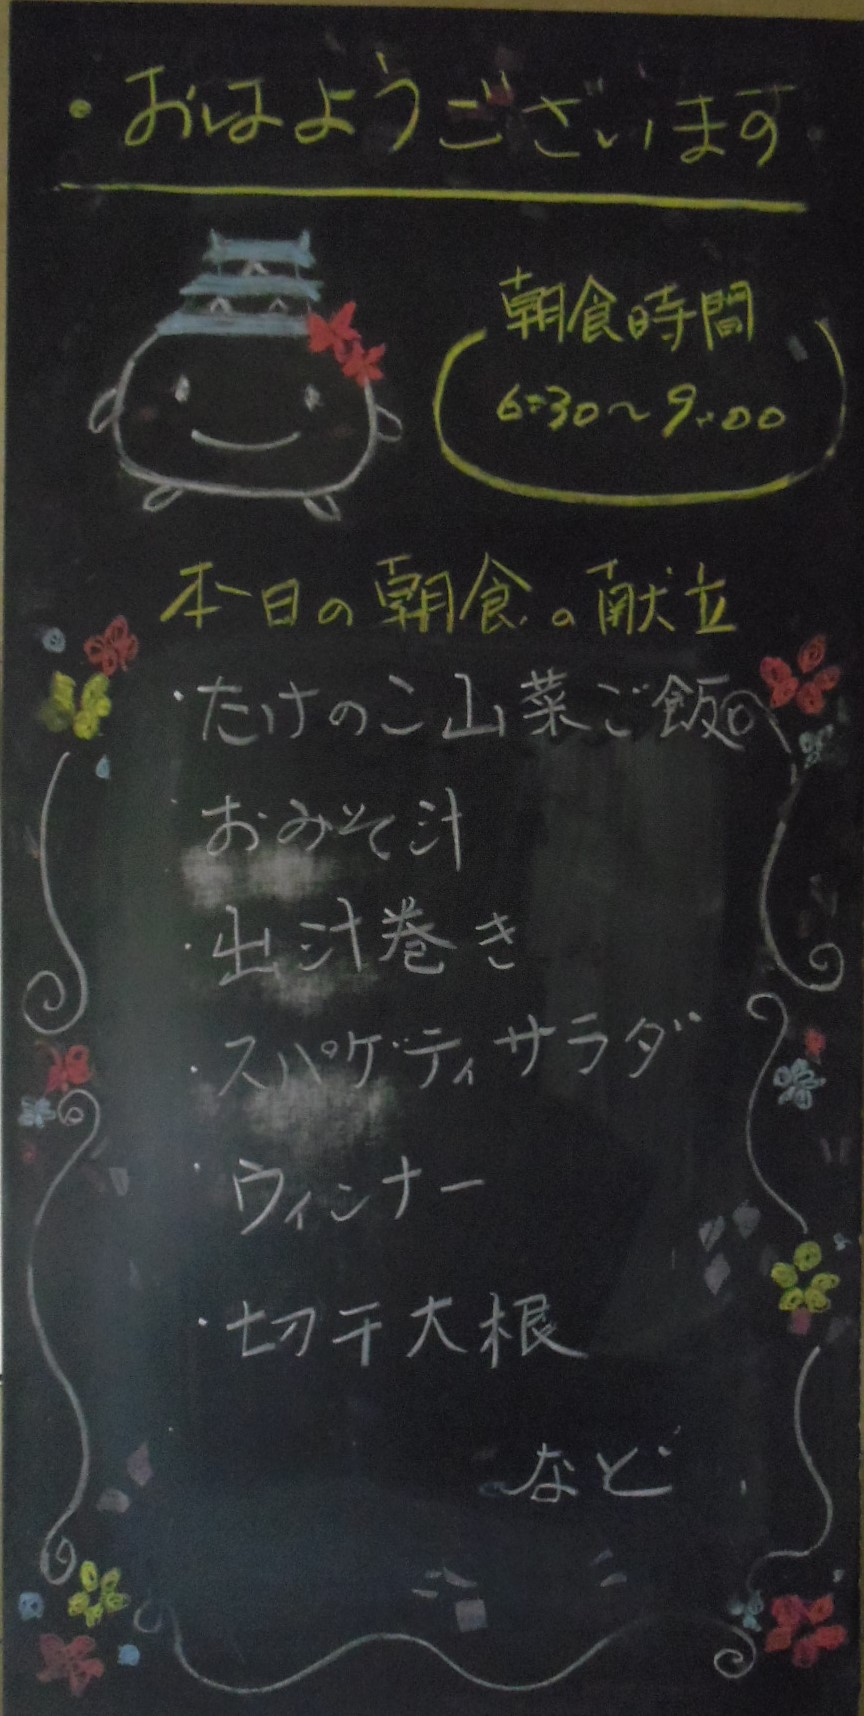 ・おはようございます
朝食時間
6:30〜9:00
本日の朝食の献立
・たけのこ山菜ご飯
・おみそ汁
・出汁巻き
・スパゲティサラダ
・ウィンナー
・切干大根
など